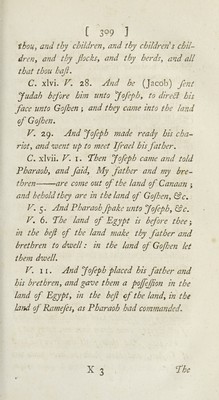 [ 309 ]
thou, and thy children, and thy children's chil-
dren, and thy flocks, and thy herds, and all
that thou hast.
C. xlvi. V. 28. And he (Jacob) sent
Judah before him unto Joseph, to direct his
face unto Goshen; and they came into the land
of Goshen.
V. 29. And Joseph made ready his cha-
riot, and went up to meet Israel his father.
C. xlvii. V. 1. Then Joseph came and told
Pharaoh, and said, My father and my bre-
thren——are come out of the land of Canaan;
and behold they are in the land of Goshen, &c.
V. 5. And Pharaoh spake unto Joseph, &c.
V. 6. The land of Egypt is before thee;
in the best of the land make thy father and
brethren to dwell: in the land of Goshen let
them dwell.
V. 11. And Joseph placed his father and
his brethren, and gave them a possession in the
land of Egypt, in the best of the land, in the
land of Rameses, as Pharaoh had commanded.
X 3
The